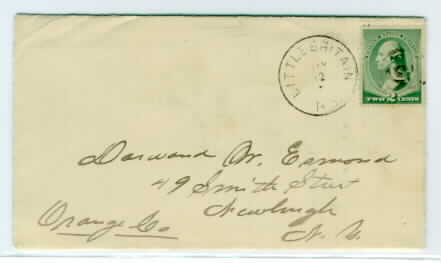 LITTLE BRITAIN
N.Y.
TWO 2 CENTS
Darwood W. Esmond
49 Smith Street
Newburgh
Orange Co
N. Y.